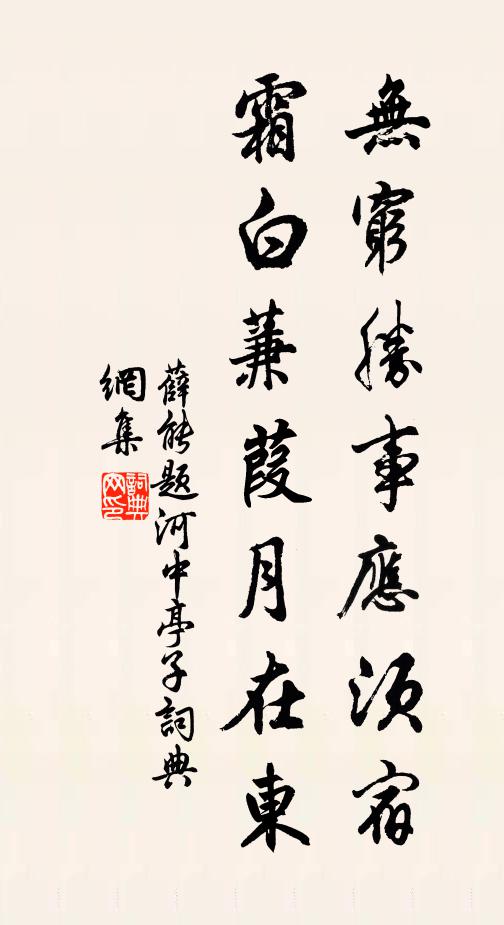 無窮勝事應須宿
霜白蒹葭月在東
薛能題河中亭子詞典
網集
詞典
网印